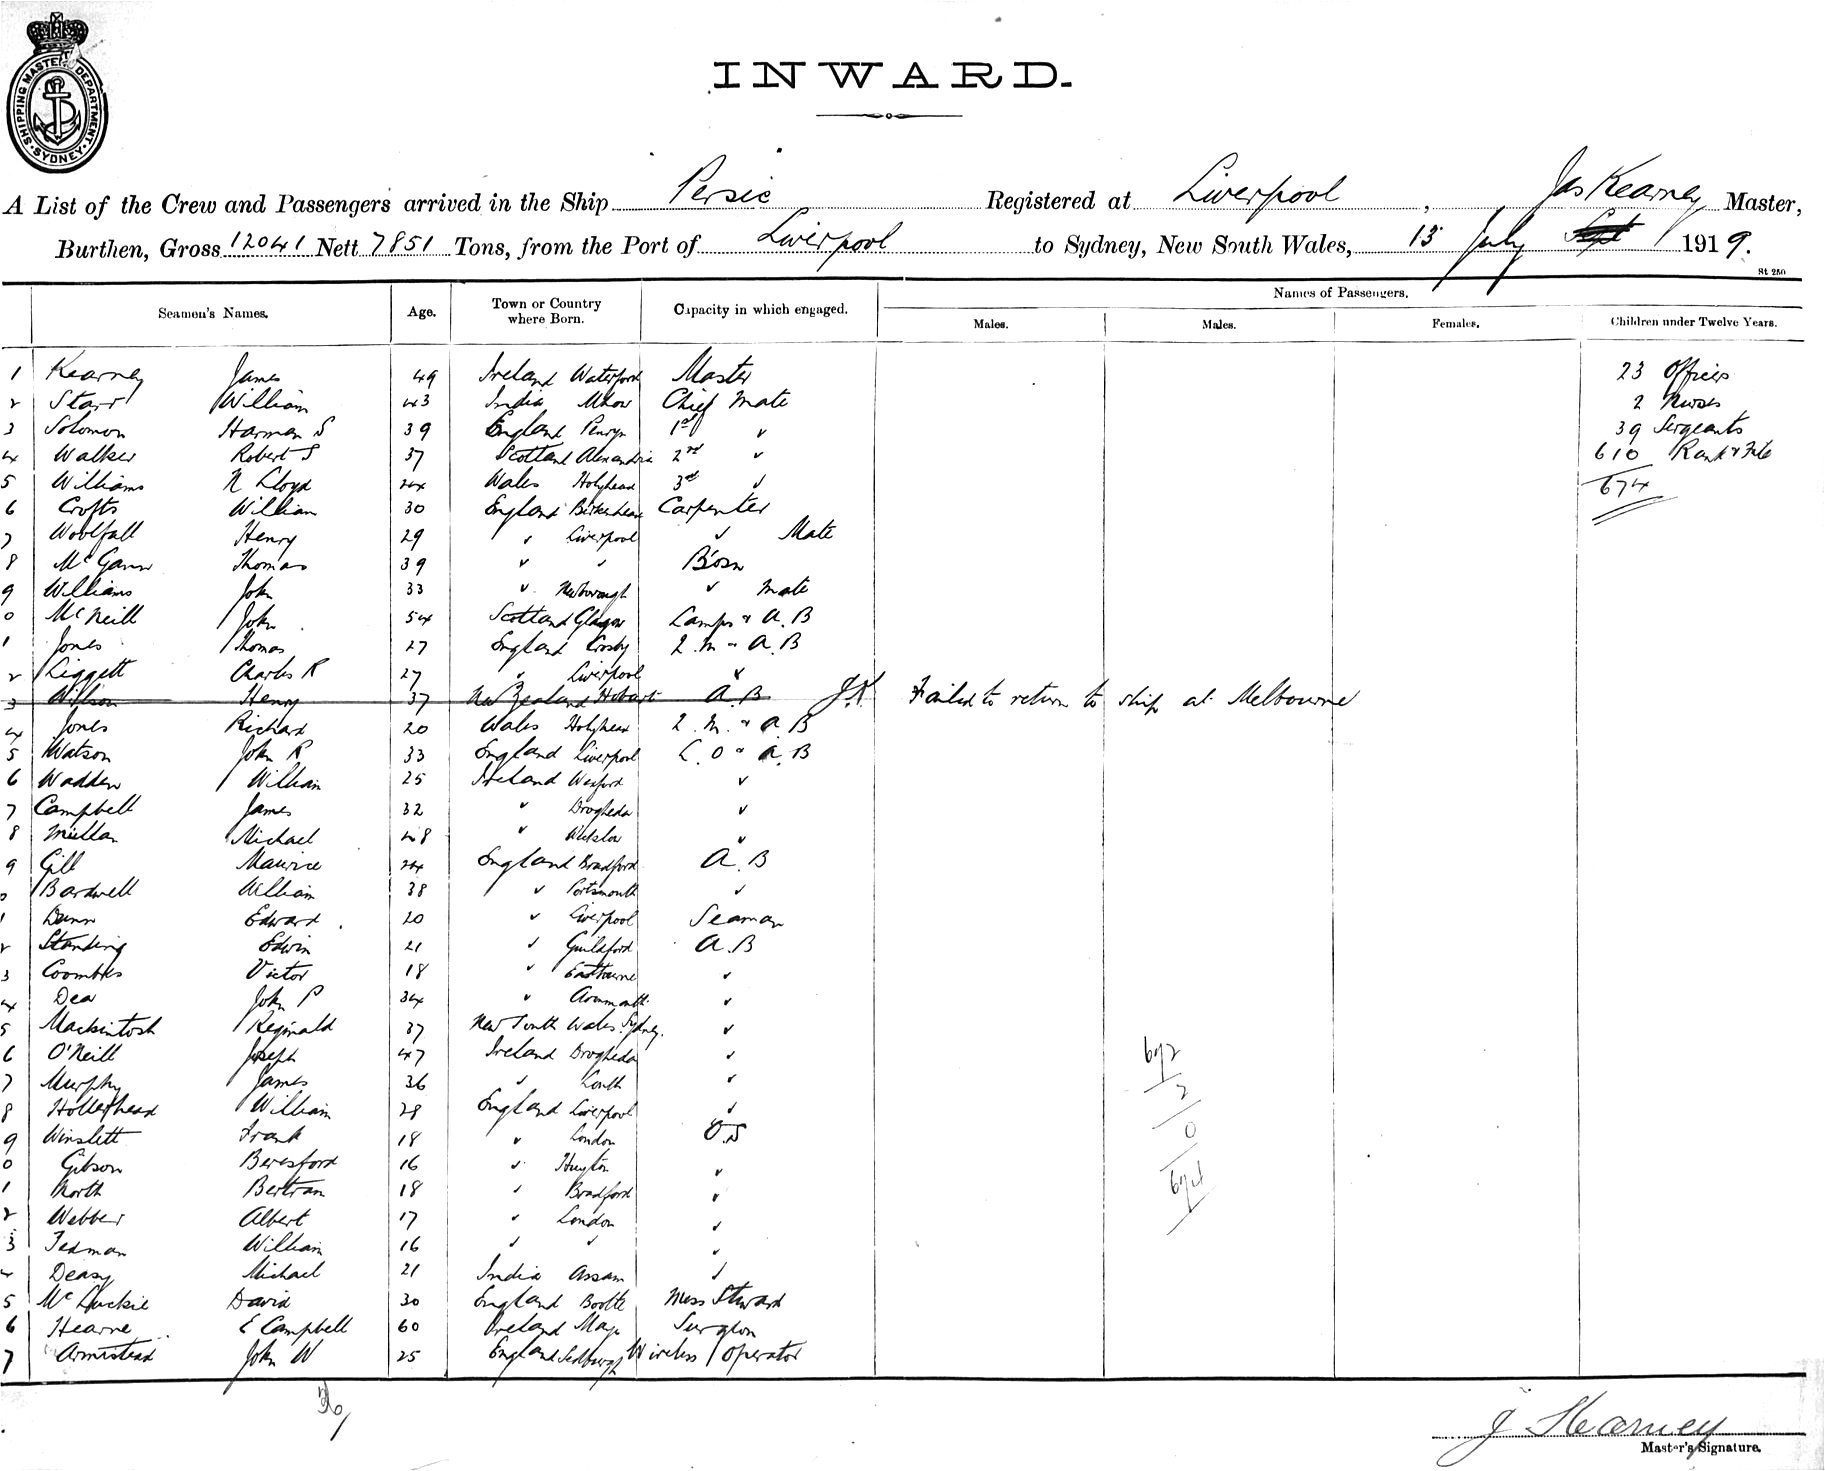 SHIPPING MASTERS DEPARTMENT
SYDNEY
INWARD.
A List of the Crew and Passengers arrived in the Ship Persic Registered at Liverpool, Jas Kearney Master,
Burthen, Gross 12041 Nett 7851 Tons, from the Port of Liverpool to Sydney, New South Wales, 13 July Sept 1919.
St 250
Seamen's Names. Age. Town or Country where Born. Capacity in which engaged. Names of Passengers.
Males. Males. Females. Children under Twelve Years.
1 Kearney James 49 Ireland Waterford Master 23 Officers
2 Starr William 43 India Mhow Chief Mate 2 Nurses
3 Solomon Harman S 39 England Penryn 1st " 39 Sergeants
4 Walker Robert S 37 Scotland Alexandria 2nd " 610 Rank & File
5 Williams N Lloyd 24 Wales Holyhead 3rd " 674
6 Crofts William 30 England Birkenhead Carpenter
7 Woolfall Henry 29 " Liverpool " Mate
8 McGann Thomas 39 " " Bosn
9 Williams John 33 " Newborough " Mate
0 McNeill John 54 Scotland Glasgow Lamps & A.B
1 Jones Thomas 27 England Crosby 2.M & A.B
2 Liggett Charles R 27 " Liverpool "
3 Wilson Henry 37 New Zealand Hobart A.B J.K Failed to return to ship at Melbourne
4 Jones Richard 20 Wales Holyhead 2.M. & A.B
5 Watson John R 33 England Liverpool L.O & A.B
6 Wadden William 25 Ireland Wexford "
7 Campbell James 32 " Drogheda "
8 Mullan Michael 48 " Wicklow "
9 Gill Maurice 24 England Bradford A.B
0 Bardwell William 38 " Portsmouth "
1 Dunn Edward 20 " Liverpool Seaman
2 Standing Edwin 21 " Guildford A.B
3 Coombes Victor 18 " Eastbourne "
4 Dea John P 34 " Avonmouth "
5 Mackintosh Reginald 37 New South Wales Sydney "
6 O'Neill Joseph 47 Ireland Drogheda "
7 Murphy James 36 " Louth "
8 Hollerhead William 28 England Liverpool "
9 Winslett Frank 18 " London O.S
0 Gibson Beresford 16 " Huyton "
1 North Bertran 18 " Bradford "
2 Webber Albert 17 " London "
3 Tedman William 16 " " "
4 Deasy Michael 21 India Assam "
5 McLuckie David 30 England Bootle Mess Steward
6 Hearne E Campbell 60 Ireland Mayo Surgeon
7 Armistead John W 25 England Sedburgh Wireless Operator
672
2
0
674
J Kearney
Master's Signature.